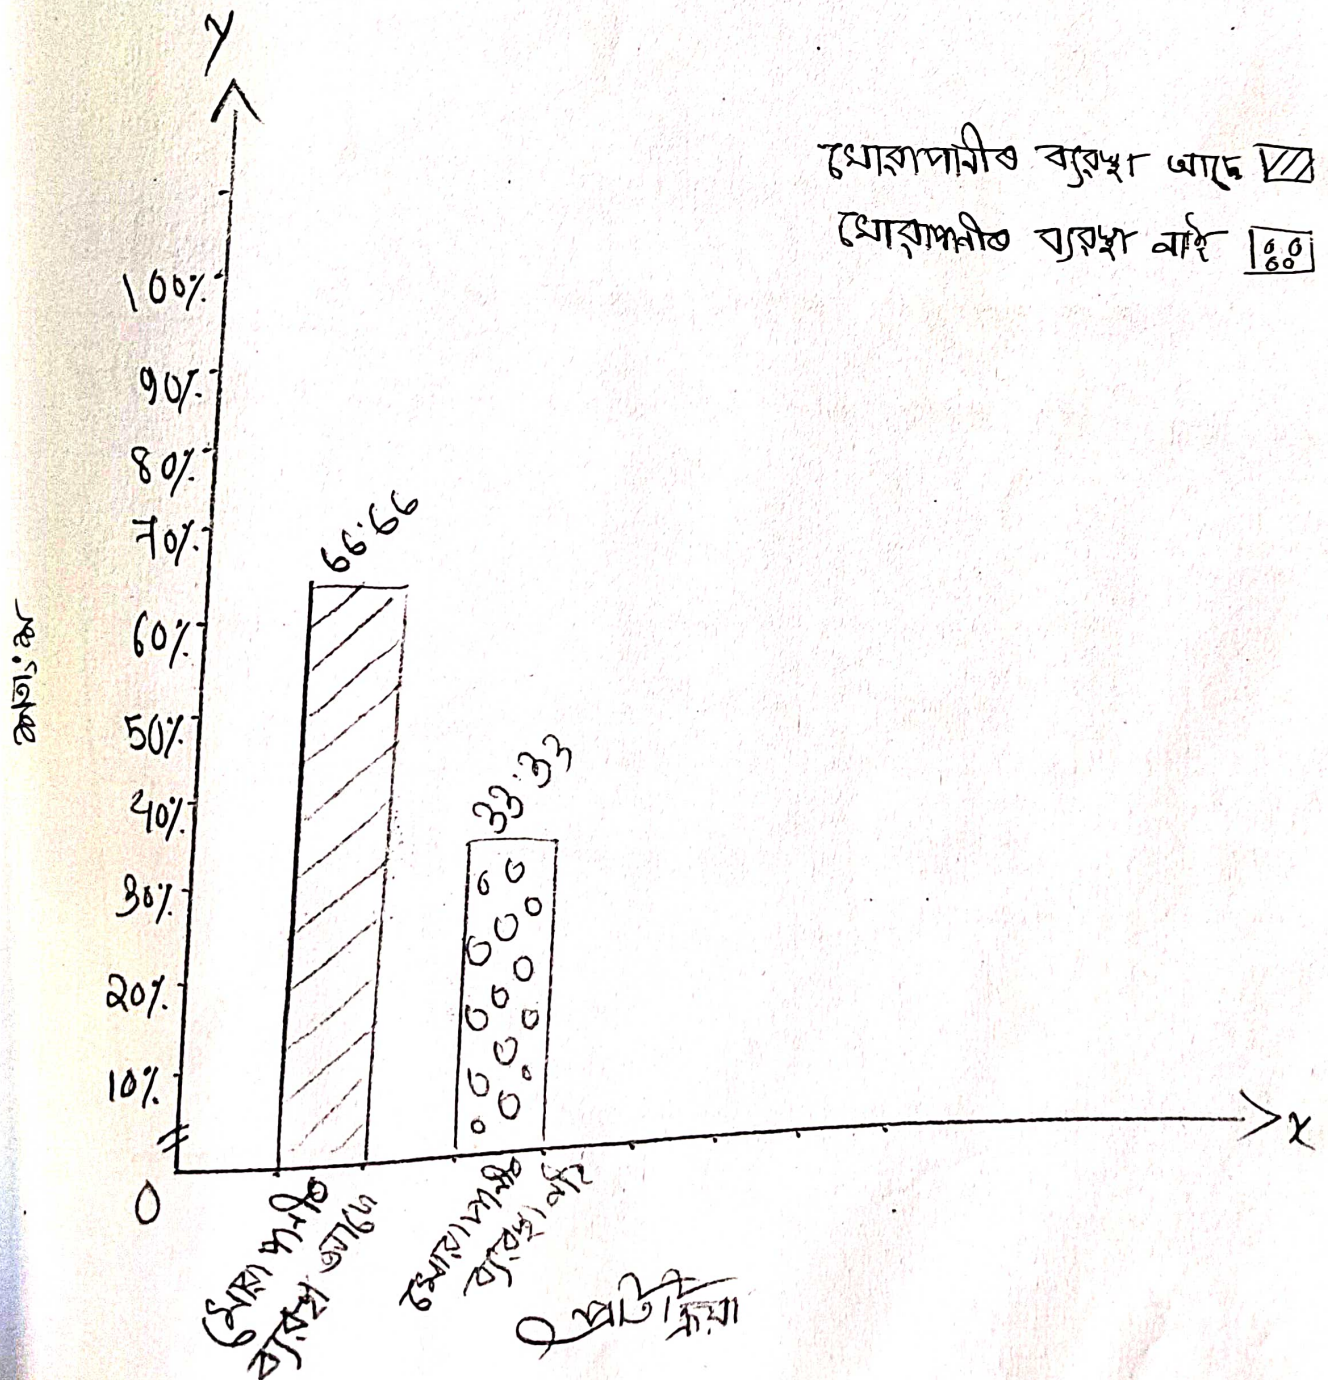 y
খোৱাপানীৰ ব্যৱস্থা আছে
খোৱাপানীৰ ব্যৱস্থা নাই
100%
90%
80%
70%
60%
50%
40%
30%
20%
10%
0
শতাংশ
66.66
33.33
x
খোৱা পানীৰ
ব্যৱস্থা আছে
খোৱা পানীৰ
ব্যৱস্থা নাই
প্ৰতিক্ৰিয়া